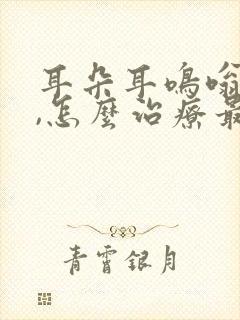 耳朵耳鳴嗡
,怎麼治療最
青霄銀月